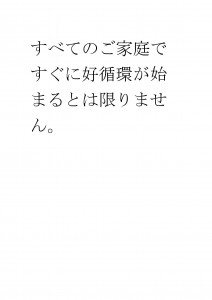 すべてのご家庭で
すぐに好循環が始
まるとは限りませ
ん。